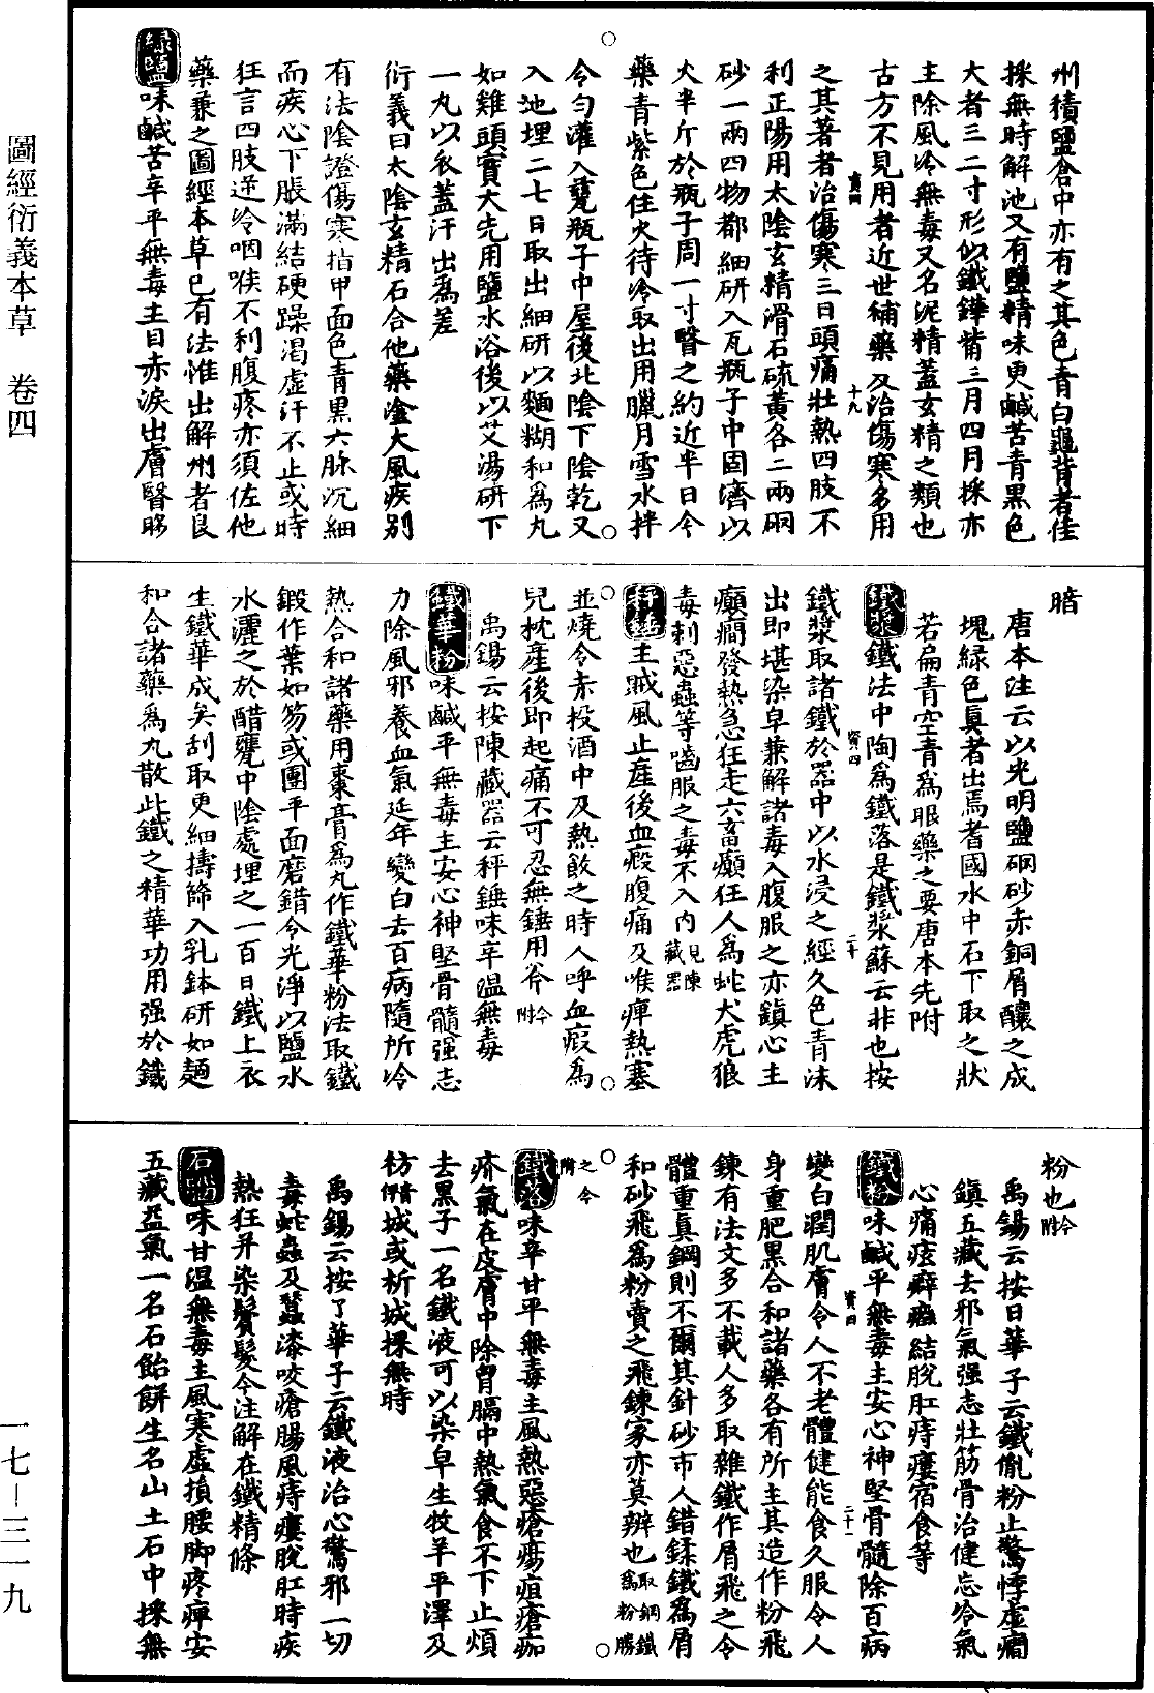 州積鹽倉中亦有之其色青白龜背者佳
採無時解池又有鹽精味更鹹苦青黑色
大者三二寸形似鐵鏵觜三月四月採亦
主除風冷無毒又名泥精蓋玄精之類也
古方不見用者近世補藥及治傷寒多用
之其著者治傷寒三日頭痛壯熱四肢不
利正陽用太陰玄精滑石硫黃各二兩硇
砂一兩四物都細研入瓦瓶子中固濟以
火半斤於瓶子周一寸㷿之約近半日令
藥青紫色住火待冷取出用臘月雪水拌
令勻灌入甆瓶子中屋後北陰下陰乾又
入池埋二七日取出細研以麵糊和為丸
如雞頭實大先用鹽水浴後以艾湯研下
一丸以衣蓋汗出為差
衍義曰太陰玄精石合他藥塗大風疾別
有法陰證傷寒指甲面色青黑六脉沉細
而疾心下脹滿結硬躁渴虛汗不止或時
狂言四肢逆冷咽喉不利腹疼亦須佐他
藥兼之圖經本草已有法惟出解州者良
綠鹽味鹹苦辛平無毒主目赤淚出膚瞖眵
暗
唐本注云以光明鹽硇砂赤銅屑釀之成
塊綠色真者出焉耆國水中石下取之狀
若扁青空青為服藥之要唐本先附
鐵漿鐵法中陶為鐵落是鐵漿蘇云非也按
鐵漿取諸鐵於器中以水浸之經久色青沫
出即堪染皁兼解諸毒入腹服之亦鎮心主
癲癎發熱急狂走六畜癲狂人為蛇犬虎狼
毒刺惡蟲等嚙服之毒不入內見陳藏器
秤錘主賊風止產後血瘕腹痛及喉痺熱塞
並燒令赤投酒中及熱飲之時人呼血瘕為
兒枕產後即起痛不可忍無錘用斧今附
禹錫云按陳藏器云秤錘味辛溫無毒
鐵華粉味鹹平無毒主安心神堅骨髓强志
力除風邪養血氣延年變白去百病隨所冷
熱合和諸藥用棗膏為丸作鐵華粉法取鐵
鍛作葉如笏或團平面磨錯令光淨以鹽水
水灑之於醋甕中陰處埋之一百日鐵上衣
生鐵華成矣刮取更細擣篩入乳鉢研如麵
和合諸藥為丸散此鐵之精華功用强於鐵
粉也今附
禹錫云按日華子云鐵胤粉止驚悸虛癎
鎮五藏去邪氣强志壯筋骨治健忘冷氣
心痛痃癖癥結脫肛痔瘻宿食等
鐵粉味鹹平無毒主安心神堅骨髓除百病
變白潤肌膚令人不老體健能食久服令人
身重肥黑合和諸藥各有所主其造作粉飛
鍊有法文多不載人多取雜鐵作屑飛之令
體重真鋼則不爾其針砂市人錯鍒鐵為屑
和砂飛為粉賣之飛鍊家亦莫辨也取鋼鐵為粉勝
之今附
鐵落味辛甘平無毒主風熱惡瘡瘍疽瘡痂
疥氣在皮膚中除胷膈中熱氣食不下止煩
去黑子一名鐵液可以染皁生牧羊平澤及
枋城或析城採無時
禹錫云按了華子云鐵液治心驚邪一切
毒蛇蟲及蠶漆咬瘡腸風痔瘻脫肛時疾
熱狂并染鬢髮今注解在鐵精條
石腦味甘溫無毒主風寒虛損腰脚疼痺安
五藏益氣一名石飴餅生名山土石中採無
圖經衍義本草 卷四
一七—三一九